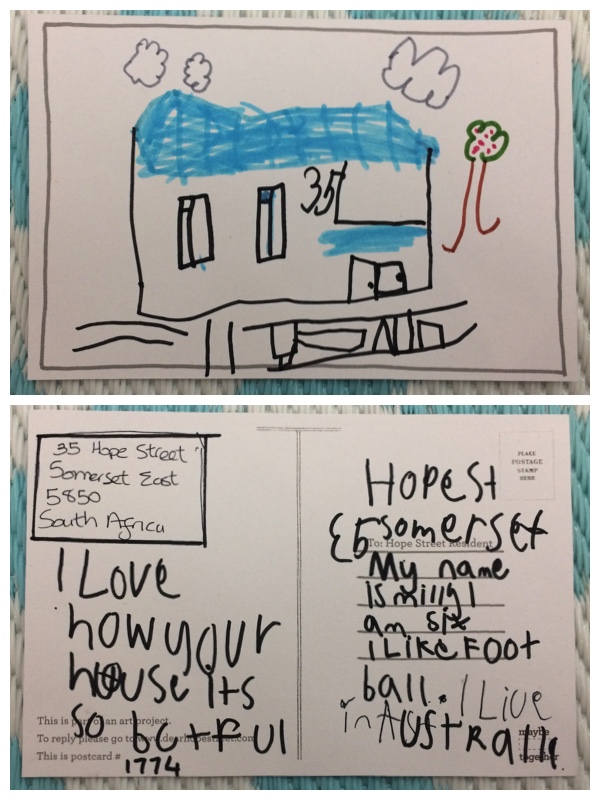 35
35 Hope Street
Somerset East
5850
South Africa
I Love
how your
house its
so be tF ul
This is part of an art project.
To reply please go to www.dearhopestreet.com
This is postcard #
1774
PLACE
POSTAGE
STAMP
HERE
HOPeSt
somerset
To: Hope Street Resident
My name
is milly I
am six
I LiKe FOOt
ball. I Live
in AUStRalia.
maybe
together